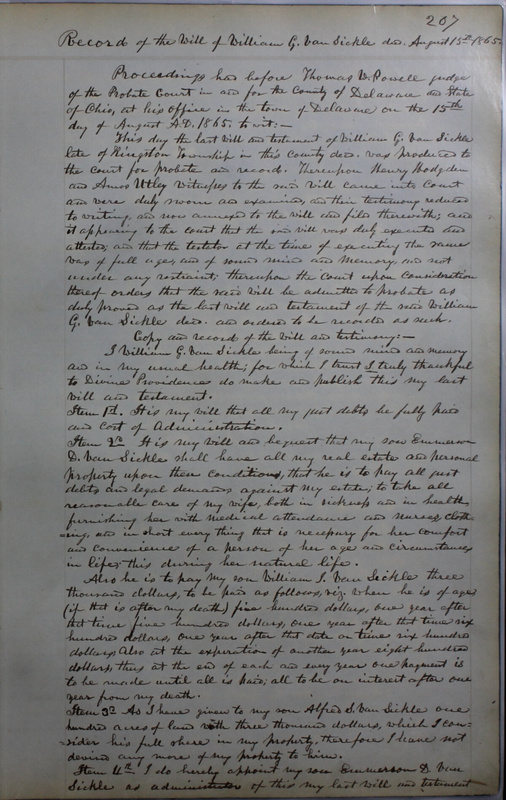 207
Record of the Will of William G. Van Sickle decd. August 15th 1865.
Proceedings had before Thomas W. Powell judge
of the Probate Court in and for the County of Delaware and State
of Ohio, at his office in the town of Delaware on the 15th
day of August A.D. 1865. to wit:—
This day the last will and testament of William G. Van Sickle
late of Kingston Township in this county decd. was produced to
the court for probate and record. Thereupon Henry Hodgden
and Amos Utley witnesses to the said will came into Court
and were duly sworn and examined, and their testimony reduced
to writing, and now annexed to the will and filed therewith; and
it appearing to the court that the said will was duly executed and
attested; and that the testator at the time of executing the same
was of full age, and of sound mind and memory, and not
under any restraint; thereupon the court upon consideration
thereof orders that the said will be admitted to probate as
duly proved as the last will and testament of the said William
G. Van Sickle decd. and ordered to be recorded as such.
Copy and record of the will and testimony:—
I William G. Van Sickle being of sound mind and memory
and in my usual health; for which I trust I truly thankful
to Divine Providence do make and publish this my last
will and testament.
Item 1st. It is my will that all my just debts be fully paid
and cost of Administration.
Item 2d It is my will and bequest that my son Emmerson
D. Van Sickle shall have all my real estate and personal
property upon these conditions, that he is to pay all just
debts and legal demands against my estate; to take all
reasonable care of my wife, both in sickness and in health
furnishing her with medical attendance and nurses, cloth
=ing, and in short every thing that is necessary for her comfort
and convenience of a person of her age and circumstances
in life; this during her natural life.
Also he is to pay my son William S. Van Sickle three
thousand dollars, to be paid as follows, viz; when he is of age
(if that is after my death) five hundred dollars, one year after
that time five hundred dollars, one year after that time six
hundred dollars, one year after that date or time six hundred
dollars, Also at the expiration of another year eight hundred
dollars, thus at the end of each and every year one payment is
to be made until all is paid, all to be on interest after one
year from my death.
Item 3d As I have given to my son Alfred S. Van Sickle one
hundred acres of land with three thousand dollars, which I con-
=sider his full share in my property, therefore I have not
devised any more of my property to him.
Item 4th. I do hereby appoint my son Emmerson D. Van
Sickle as administrator of this my last will and testament